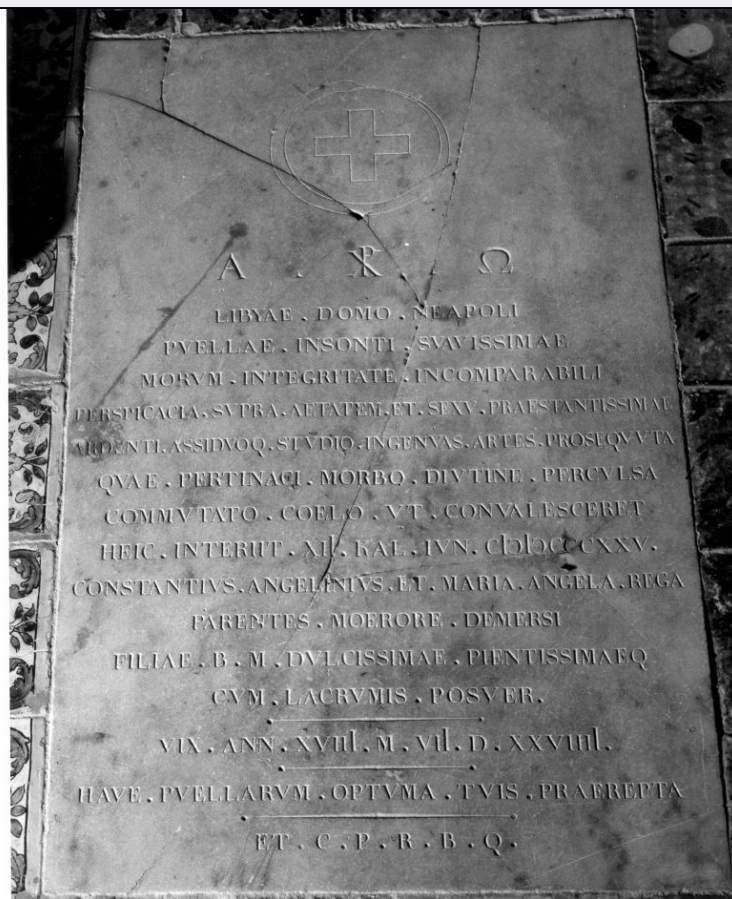 Α . ☧ . Ω
LIBYAE . DOMO . NEAPOLI
PVELLAE . INSONTI . SVAVISSIMAE
MORVM . INTEGRITATE . INCOMPARABILI
PERSPICACIA . SVPRA . AETATEM . ET . SEXV . PRAESTANTISSIMAE
ARDENTI . ASSIDVOQ . STVDIO . INGENVAS . ARTES . PROSEQVVTA
QVAE . PERTINACI . MORBO . DIVTINE . PERCVLSA
COMMVTATO . COELO . VT . CONVALESCERET
HEIC . INTERIIT . XII . KAL . IVN . CIƆIƆCCCXXV .
CONSTANTIVS . ANGELINIVS . ET . MARIA . ANGELA . REGA
PARENTES . MOERORE . DEMERSI
FILIAE . B . M . DVLCISSIMAE . PIENTISSIMAEQ
CVM . LACRVMIS . POSVER .
VIX . ANN . XVIIII . M . VII . D . XXVIIII .
HAVE . PVELLARVM . OPTVMA . TVIS . PRAEREPTA
ET . C . P . R . B . Q .